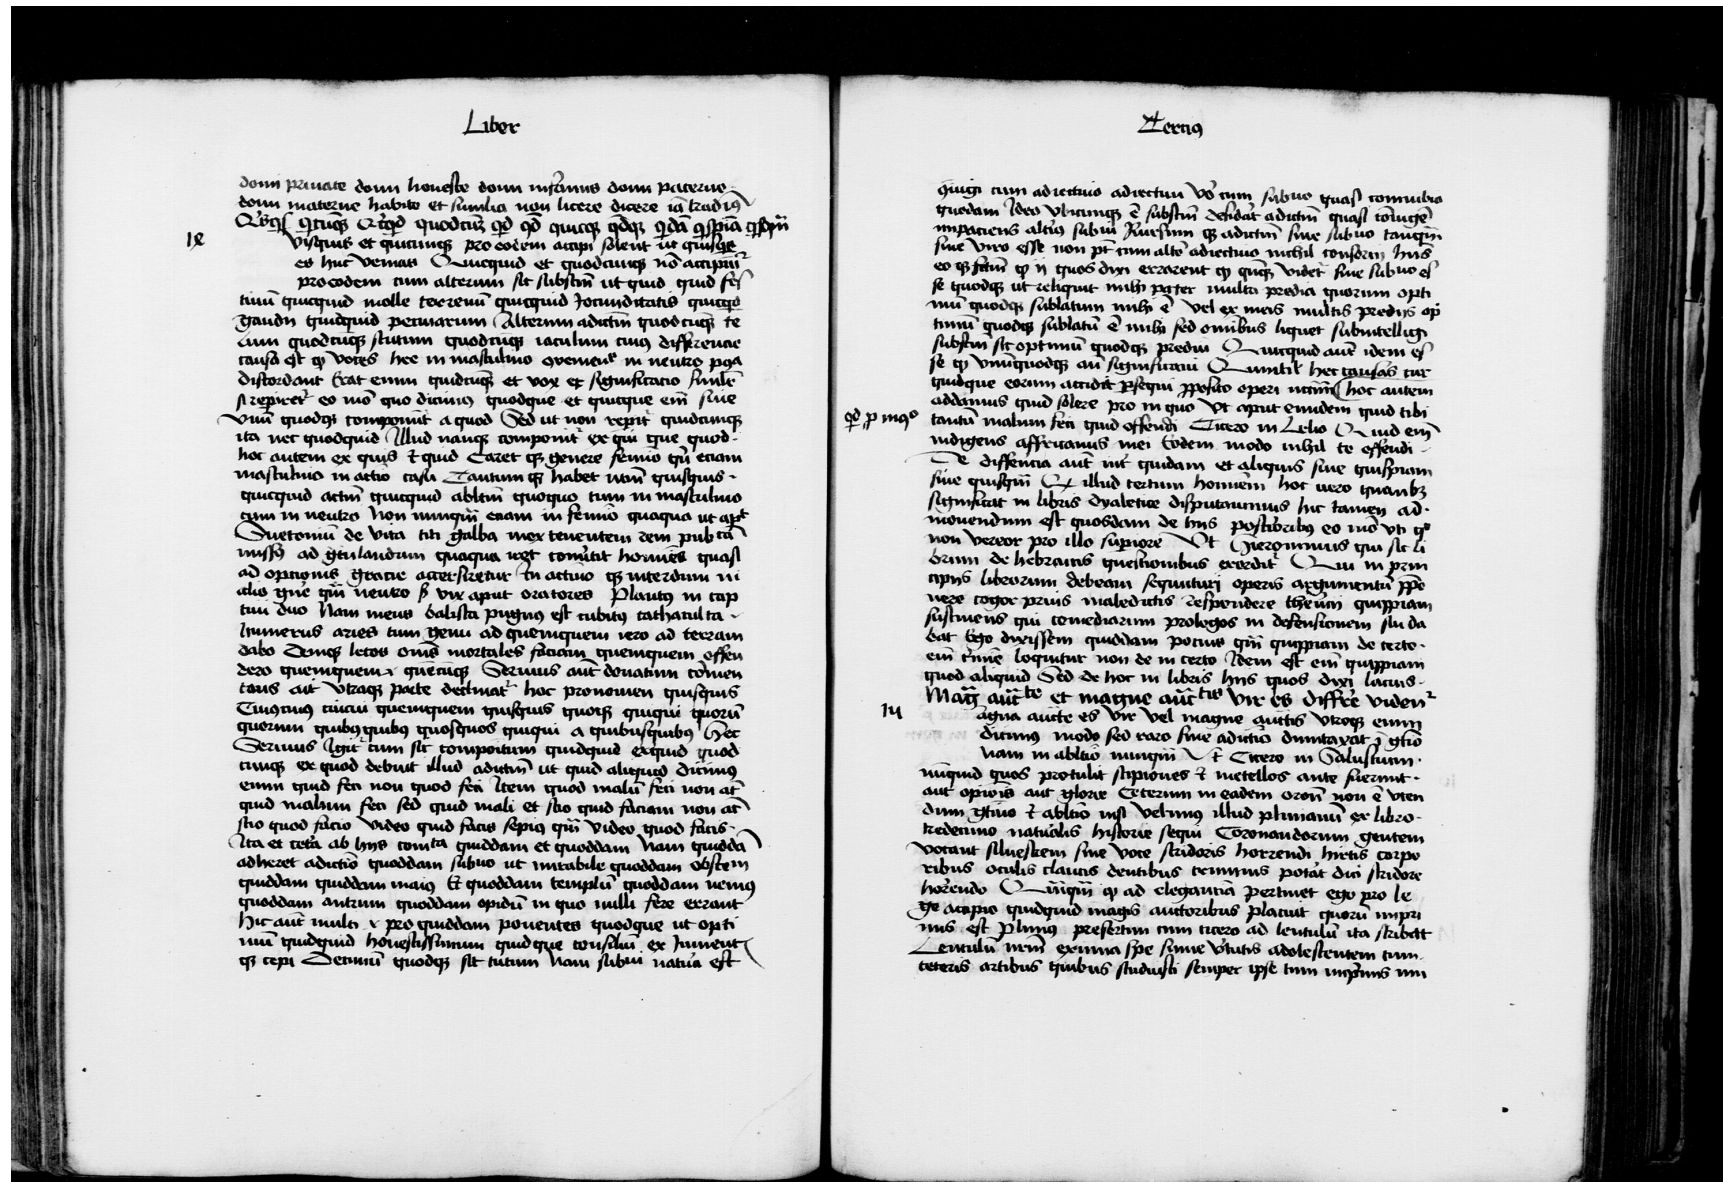 Liber
domi private domi honeste domi infirmus domi paterne
domi materne habito et similia non licere dicere iā tradidi9
ix
visquis et quicunq pro eodem accipi solent ut quisqs
es huc venias Quicquid et quodcunq nō accipiūt
pro eodem cum alterum sit substm̄ ut quid quid fes
tiuū quicquid molle terrenū quicquid Jocunditatis quicqd
gaudii quicquid pecuniarum Alterum adictm̄ quodcūq te
lum quodcūq scutum quodcūq iaculum cuius differencie
causa est q voces hee in masculino conueniūt in neutro
discordant Erat enim quidcūq et vox et significatio similr
si repiret eo mō quo dicimus quodque et quicque em̄ siue
vnū quodq componit a quod Sed ut non repit quidcunq
ita nec quodquid Illud nanq componit ex qui que quod
hoc autem ex quis et quid Caret q genere femino qn̄ etiam
masculino in actio casu Tantum q habet nom̄ quisquis
quicquid actm̄ quicquid abltm̄ quoquo tum in masculino
tum in neutro Non nunqm̄ etiam in femino quaqua ut aput
Suetoniū de vita titi Galba mox tenentem rem publicā
missis ad gratulandum quaqua iret conuicit homines quasi
ad optionis gracie accersiretur In actiuo q interdum in
alio gne qm̄ neutro s vix aput oratores Plautus in cap
tiui duo Nam meus balista pugnus est cubitus cathaculta
humerus aries tum genu ad quemquem iero ad terram
dabo Denq letos omīs mortales faciam quemquem offen
dero quemquem quēcūq Seruius aūt donatum cōmen
tans ait vtraq parte declinat hoc pronomen quisquis
Cuiuscuius cuicui quemquem quisquis quoq quiqui quorū
quorum quibusquibus quosquos quiqui a quibusquibus Hec
Seruius Igit cum sit compositum quidquid ex quid quod
cunq ex quod debuit illud adictm̄ ut quid aliquid dicim9
enim quid feci non quod feci Item quod malū feci non at
quid malum feci sed quid mali et scio quid faciam non at
scio quod facio video quid facis sepius qm̄ video quod facis
Ita et cetera ab hiis quiddam et quoddam Nam quiddā
adheret adictio quoddam subuo ut mirabile quoddam obscen
quiddam quiddam maius Et quoddam templū quoddam nemus
quoddam antrum quoddam opidū in quo nulli fere errant
Hic aut multi pro quiddam ponentes quodque ut opti
mū quidquid honestissimum quidque consiliū ex Inuenit
q cepi Decimū quodq sit tutum Nam subui natura est
Tercius
quigi cum adiectiuo adiectiui vo cum subuo quasi connubia
quedam Ideo vbicunq ē substm̄ desiderat adictm̄ quasi cōiugē
impaciens alteri9 subui Rursum q adictm̄ siue subuo tanqm̄
sine viro esse non pt cum alto adiectiuo nichil consorcii hiis
eo q fit q ii quos dixi errarent q quicq videt siue subuo es
se quodq ut reliquit mihi pater multa predia quorum opti
mū quodq sublatum mihi ē vel ex meis multis prediis op
timū quodq sublatū ē mihi sed omībus liquet subintelligi
substm̄ sit optimū quodq predii Quicquid aut idem es
se q vnūquodq aūt significat Quintil hec causas cur
quidque eorum accidat psequi pposito operi necm̄ hoc autem
qd p inq
addamus quid solere pro in quo Ut aput eundem quid tibi
tantū malum feci quid offendi Cicero in Lelio Quid em̄
indigens affricanus mei Eodem modo nihil te offendi
De diffencia aut int quidam et aliquis siue quispiam
siue quisqm̄ Ex illud tertum hominem hoc uero quamuis
significat in libris dyaletice disputauimus hic tamen ad
monendum est quosdam de hiis postioribus eo mō vti q
non vereor pro illo supiore Ut Hieronimus qui sic li
brum de hebraicis questionibus exordit Qui in prin
cipiis librorum debeam sequituri operis argumentū ppo
nere cogor prius maledictis respondere therenci quippiam
sustinens qui comediarum prologos in defensionem sui da
bat Ego dixissem quiddam pocius qm̄ quippiam de certo
em̄ loquitur non de incerto Idem est em̄ quippiam
quod aliquid Sed de hoc in libris hiis quos dixi latius
Mag auctte et magne auctis vir es diffre videnr
iii
agna aucte es vir vel magne auctis vtroq enim
dicimus modo sed raro sine adictio dumtaxat ī gtīo
Nam in abltīo nunqm̄ Ut Cicero in Salustium
nunquid quos protulit scipiones et metellos ante fuerint
aut opiōis aut glorie Ceterum in eadem orōn non ē vten
dum gtīuo et abltīo nisi velimus illud plinianū ex libro
tredecimo naturalis historie sequi Coromandorum gentem
vocant siluestrem sine voce stridoris horrendi hirtis corpo
ribus oculis claucis dentibus caninis poterat dici stridore
horrendo Quāqm̄ q ad eleganciā pertinet ego pro le
ge accipio quidquid magis auctoribus placuit quorū inpri
mis est Plinius presertim cum cicero ad lentulū ita scribat
Lentulū nrm̄ eximia spe sume vtutis adolescentem cum
ceteris artibus quibus studuisti semper ipse tum inpmis imi